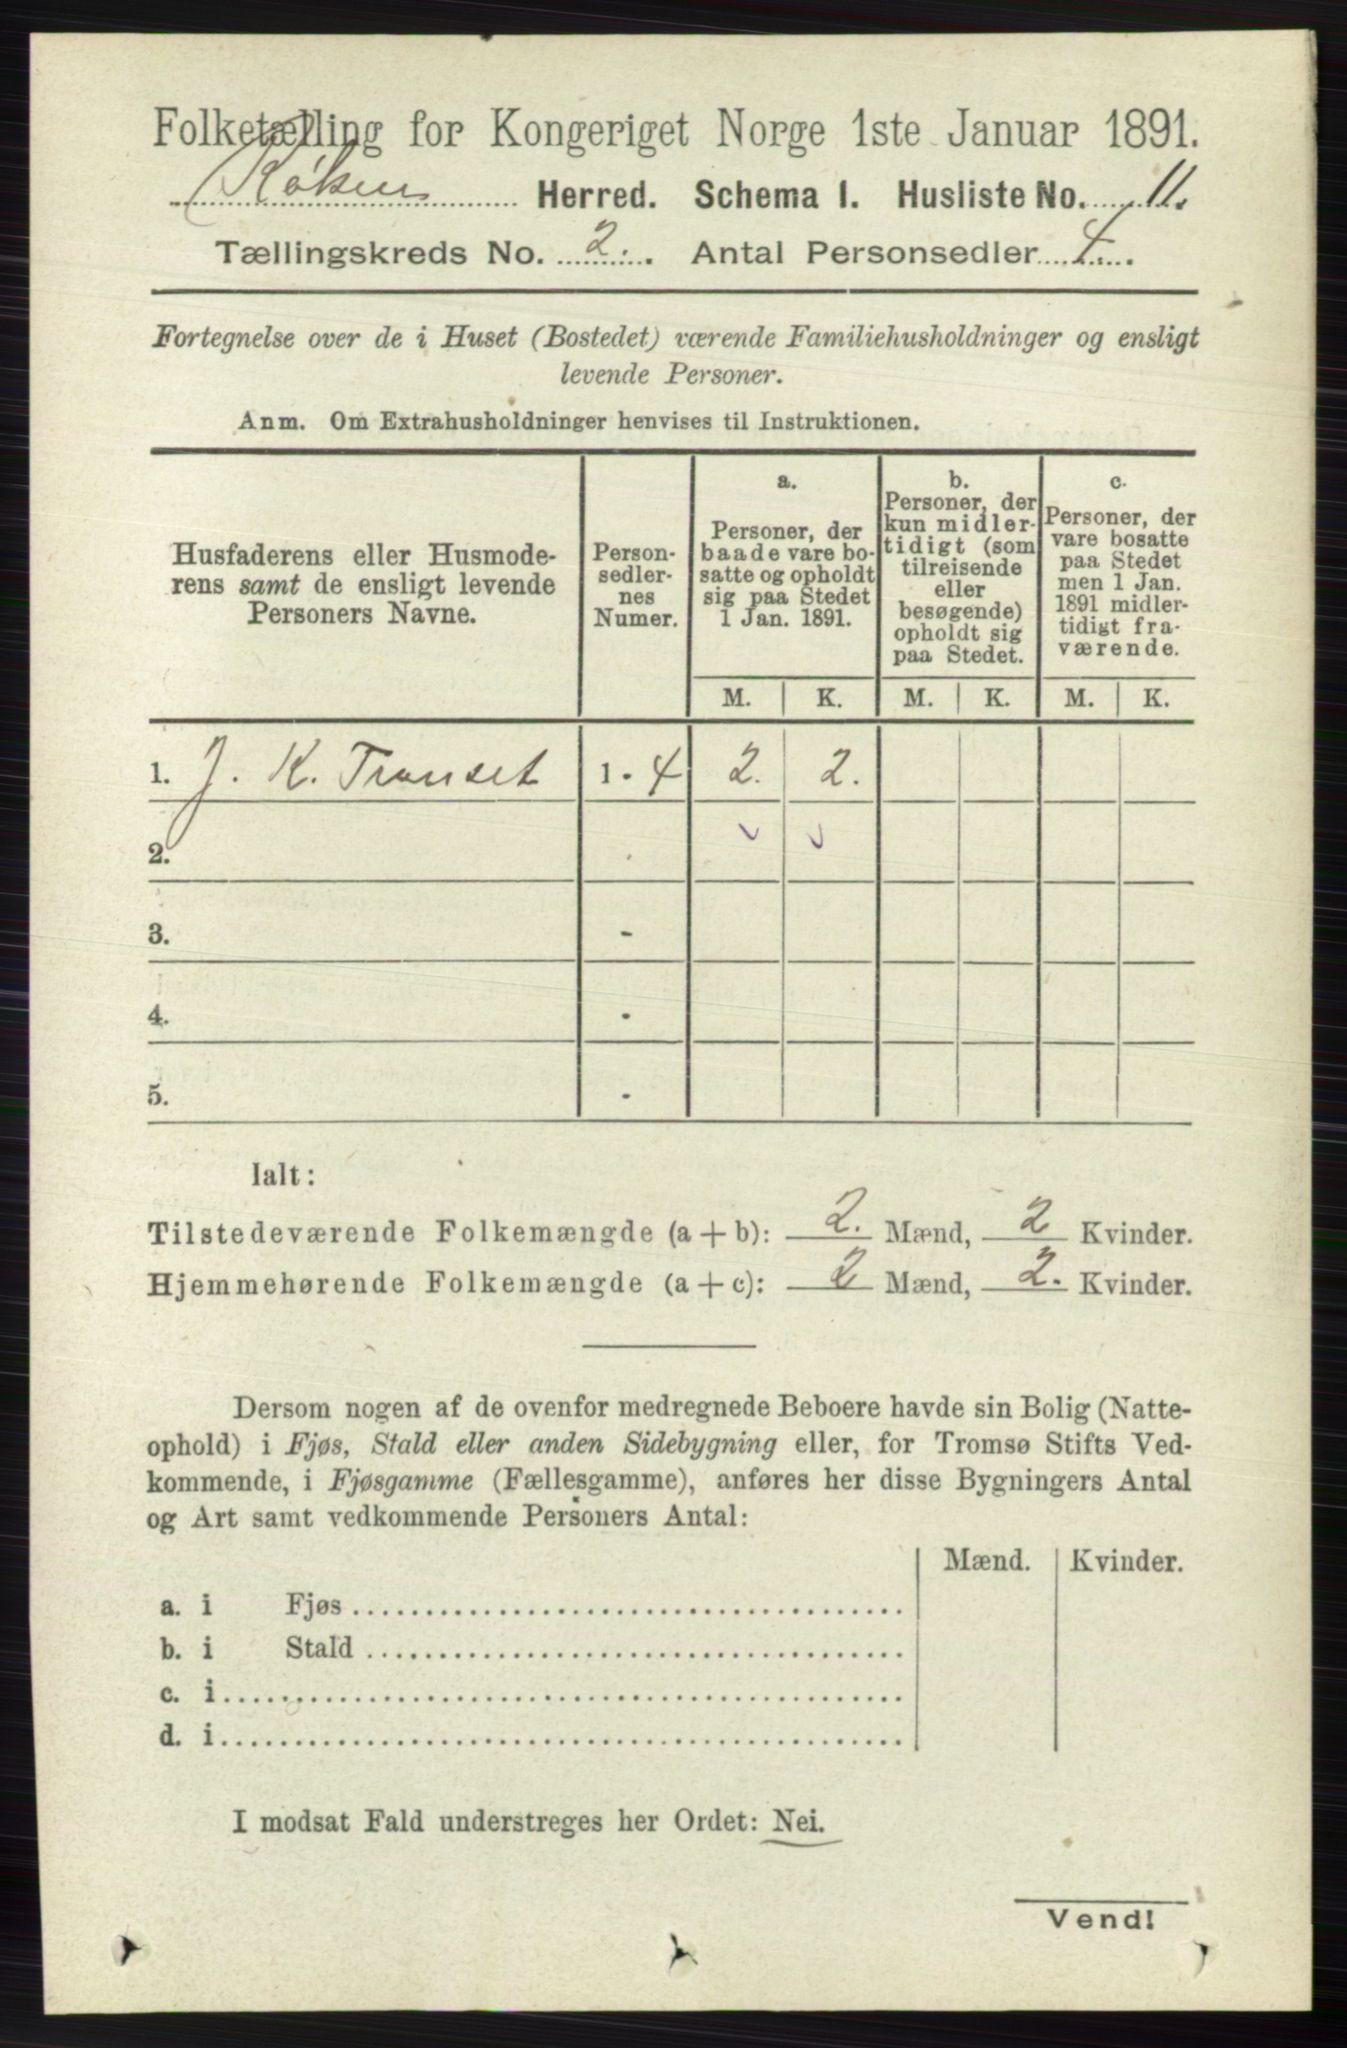 Folketælling for Kongeriget Norge 1ste Januar 1891.
Røken Herred. Schema I. Husliste No. 11.
Tællingskreds No. 2. Antal Personsedler 4.
Fortegnelse over de i Huset (Bostedet) værende Familiehusholdninger og ensligt
levende Personer.
Anm. Om Extrahusholdninger henvises til Instruktionen.
Husfaderens eller Husmode-
rens samt de ensligt levende
Personers Navne.
Person-
sedler-
nes
Numer.
a.
Personer, der
baade vare bo-
satte og opholdt
sig paa Stedet
1 Jan. 1891.
b.
Personer, der
kun midler-
tidigt (som
tilreisende
eller
besøgende)
opholdt sig
paa Stedet.
c.
Personer, der
vare bosatte
paa Stedet
men 1 Jan.
1891 midler-
tidigt fra-
værende.
M. K. M. K. M. K.
1. J. K. Transet 1 - 4 2. 2.
2.
3. -
4. -
5. -
Ialt:
Tilstedeværende Folkemængde (a + b): 2. Mænd, 2 Kvinder.
Hjemmehørende Folkemængde (a + c): 2 Mænd, 2. Kvinder.
Dersom nogen af de ovenfor medregnede Beboere havde sin Bolig (Natte-
ophold) i Fjøs, Stald eller anden Sidebygning eller, for Tromsø Stifts Ved-
kommende, i Fjøsgamme (Fællesgamme), anføres her disse Bygningers Antal
og Art samt vedkommende Personers Antal:
Mænd. Kvinder.
a. i Fjøs
b. i Stald
c. i
d. i
I modsat Fald understreges her Ordet: Nei.
Vend!